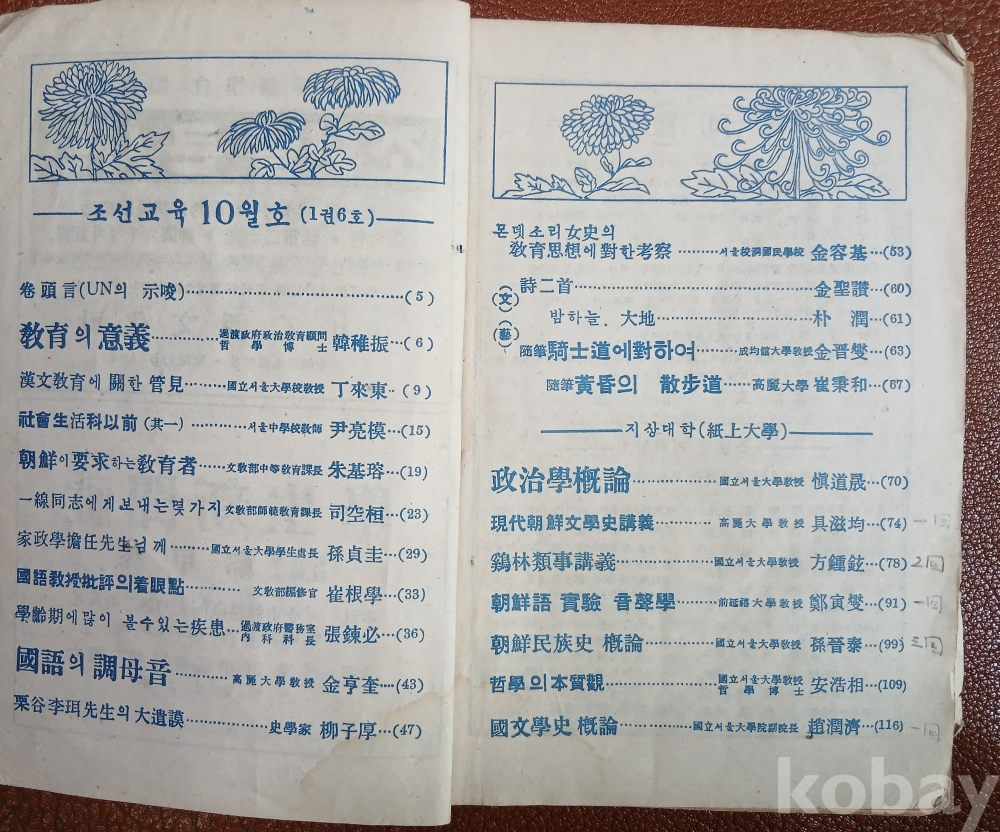 조선교육 10월호 (1권6호)
卷頭言(UN의 示唆)……(5)
教育의意義……過渡政府政治敎育顧問 哲學博士 韓稚振…(6)
漢文敎育에 關한 管見……國立서울大學校敎授 丁來東…(9)
社會生活科以前(其一)……서울中學校敎師 尹亮模…(15)
朝鮮이要求하는敎育者……文敎部中等敎育課長 朱基瑢…(19)
一線同志에게보내는몇가지 文敎部師範敎育課長 司空桓…(23)
家政學擔任先生님께……國立서울大學學生處長 孫貞圭…(29)
國語敎授批評의着眼點……文敎部編修官 崔根學…(33)
學齡期에많이 볼수있는疾患…過渡政府醫務室 內科科長 張鍊必…(36)
國語의調母音……高麗大學敎授 金亨奎…(43)
栗谷李珥先生의大遺謨……史學家 柳子厚…(47)
몬뎃소리女史의
敎育思想에對한考察……서울校洞國民學校 金容基…(53)
(文)(藝)
詩二首……金聖讚…(60)
밤하늘. 大地……朴 潤…(61)
隨筆 騎士道에對하여……成均舘大學敎授 金晋燮…(63)
隨筆 黃昏의 散步道……高麗大學 崔秉和…(67)
지상대학(紙上大學)
政治學槪論……國立서울大學敎授 愼道晟…(70)
現代朝鮮文學史講義……高麗大學敎授 具滋均…(74) 一回
鷄林類事講義……國立서울大學敎授 方鍾鉉…(78) 2回
朝鮮語 實驗 音聲學……前延禧大學敎授 鄭寅燮…(91) 一回
朝鮮民族史 槪論……國立서울大學敎授 孫晉泰…(99) 三回
哲學의本質觀……國立서울大學敎授 哲學博士 安浩相…(109)
國文學史 槪論……國立서울大學院副院長 趙潤濟…(116) 一回
kobay